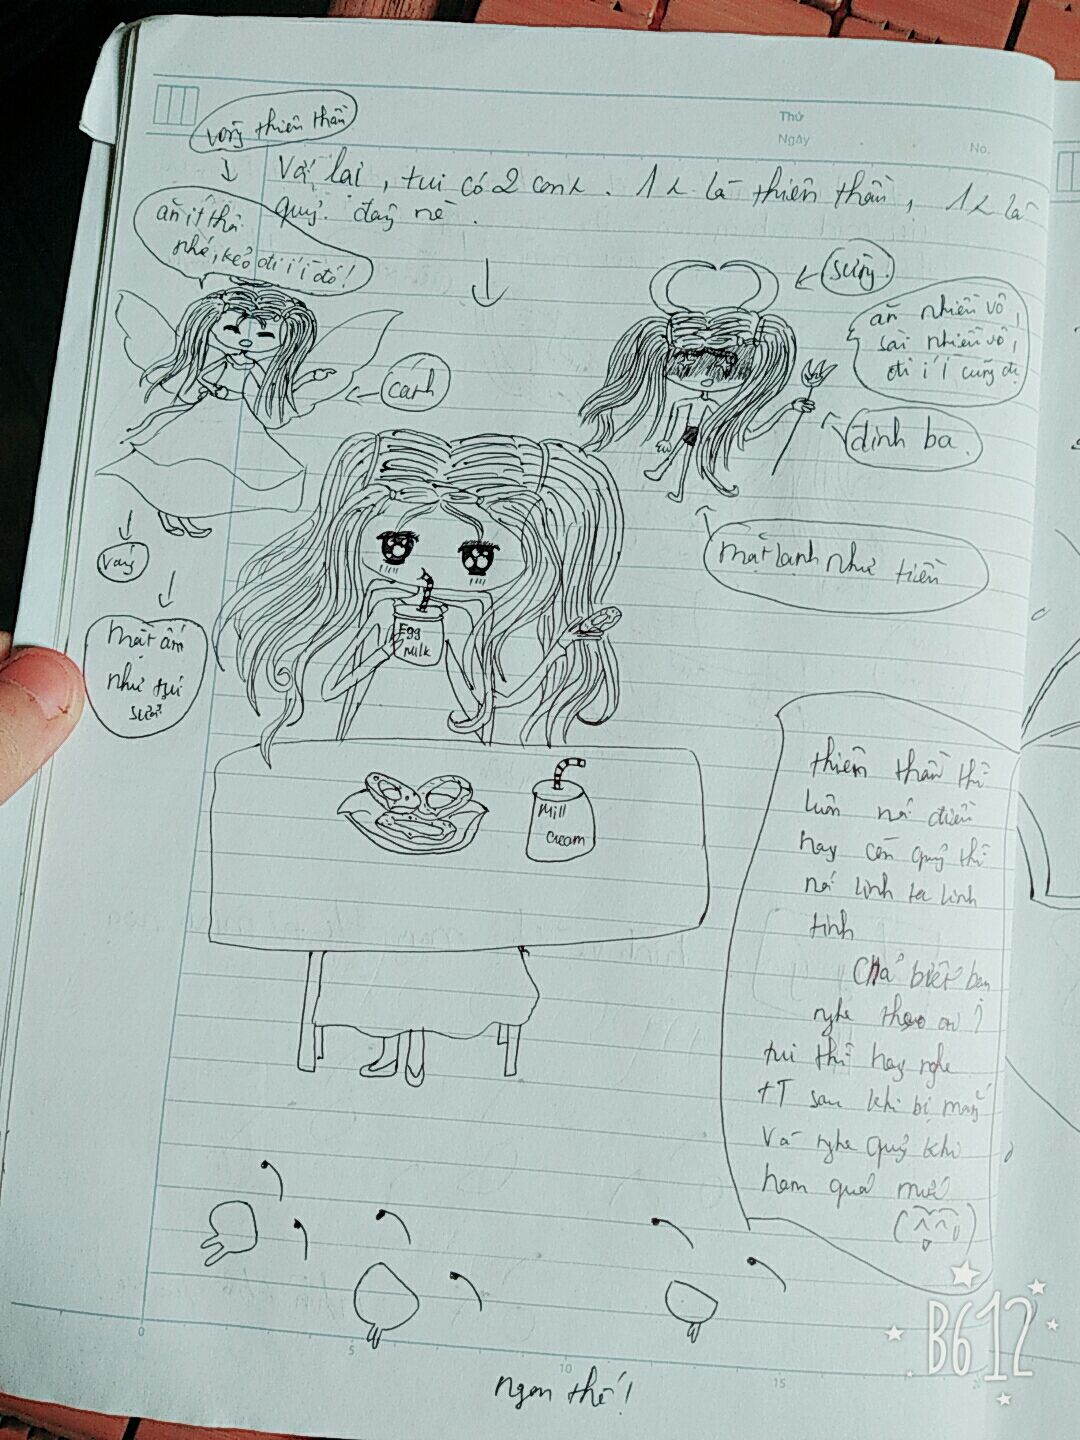 Thứ
Ngày
No.
vòng thiên thần
Vả lại, tui có 2 con . 1 là thiên thần, 1 là
quỷ. đây nè.
ăn ít thôi
nhé, kẻo đi í í đó!
sừng
ăn nhiều vô,
sài nhiều vô,
đi í í cũng đc
cánh
đinh ba
mặt lạnh như tiền
váy
mặt ấm
như túi
sưởi
Egg
milk
Mill
cream
thiên thần thì
luôn nói điều
hay còn quỷ thì
nói linh ta linh
tinh
Chả biết bạn
nghe theo ai?
tui thì hay nghe
tT sau khi bị mắng
và nghe quỷ khi
ham quá mức
ngon thế!
0
5
10
15
B612